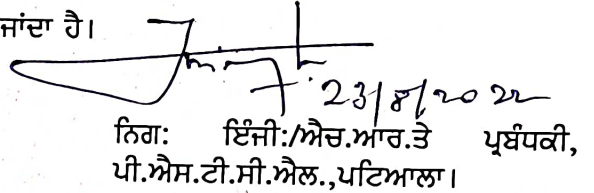 ਜਾਂਦਾ ਹੈ।
23/8/2022
ਨਿਗ: ਇੰਜੀ:/ਐਚ.ਆਰ.ਤੇ ਪ੍ਰਬੰਧਕੀ,
ਪੀ.ਐਸ.ਟੀ.ਸੀ.ਐਲ.,ਪਟਿਆਲਾ।